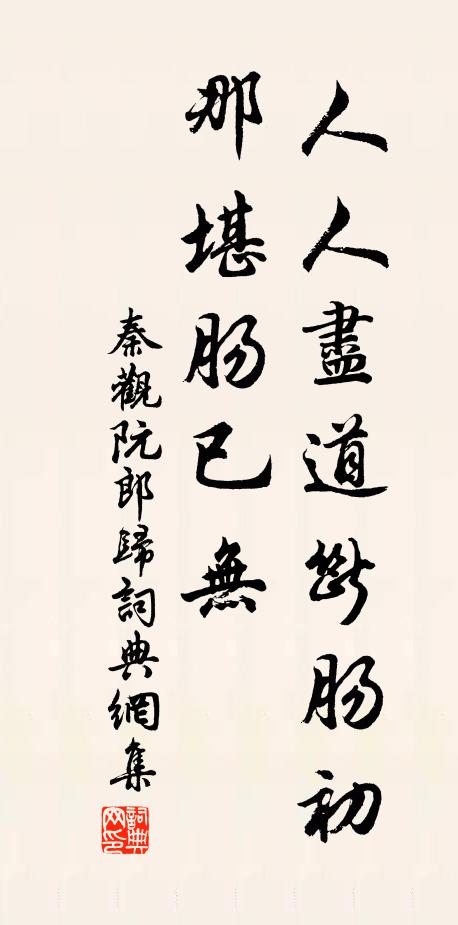 人人盡道斷腸初
那堪腸已無
秦觀阮郎歸詞典網集
詞典網印